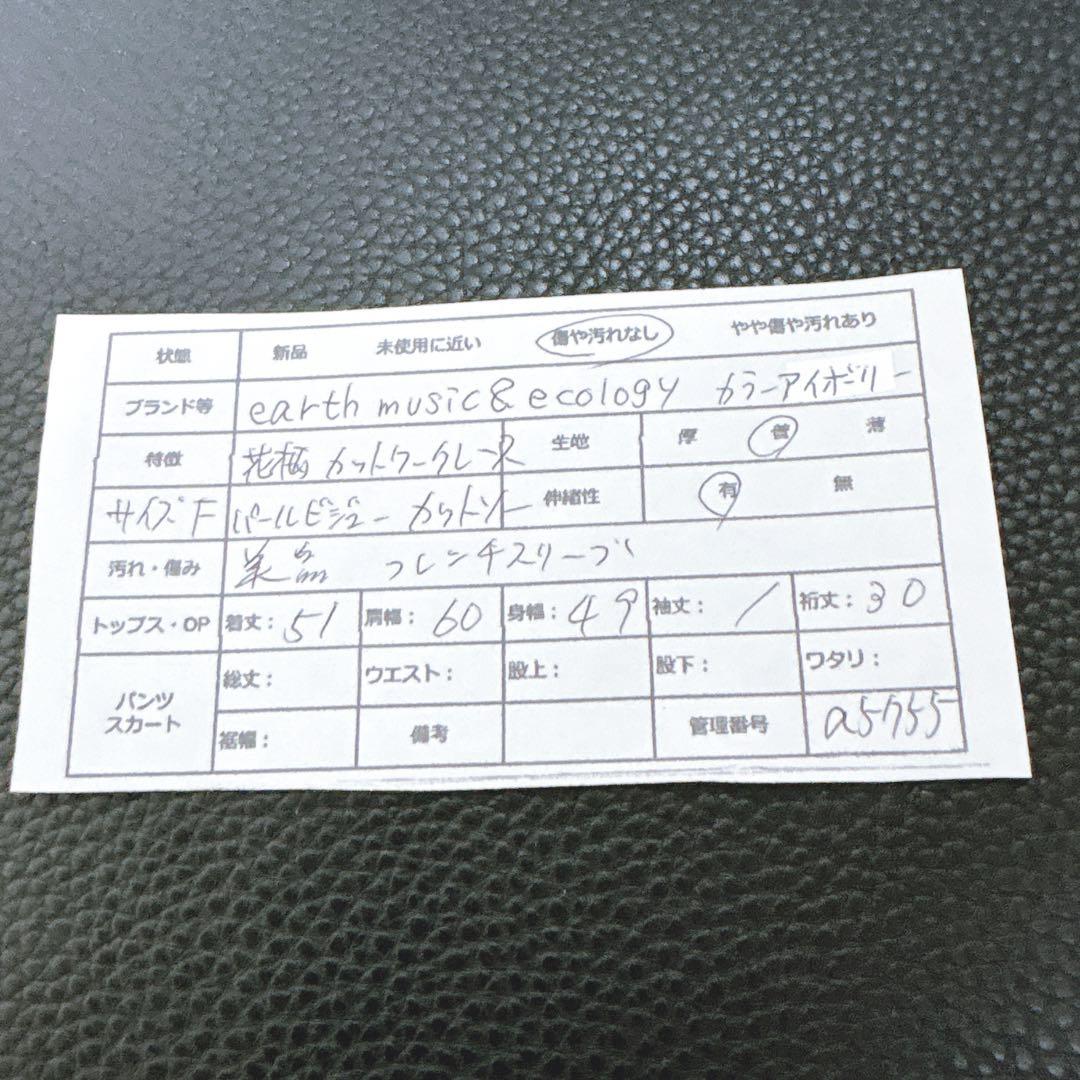 状態 新品 未使用に近い 傷や汚れなし やや傷や汚れあり
ブランド等 earth music & ecology カラーアイボリー
特徴 花柄 カットワークレース 生地 厚 普 薄
サイズF パールビジュー カットソー 伸縮性 有 無
汚れ・傷み 美品 フレンチスリーブ
トップス・OP 着丈: 51 肩幅: 60 身幅: 49 袖丈: / 裄丈: 30
パンツ スカート 総丈: ウエスト: 股上: 股下: ワタリ:
裾幅: 備考 管理番号 a5755